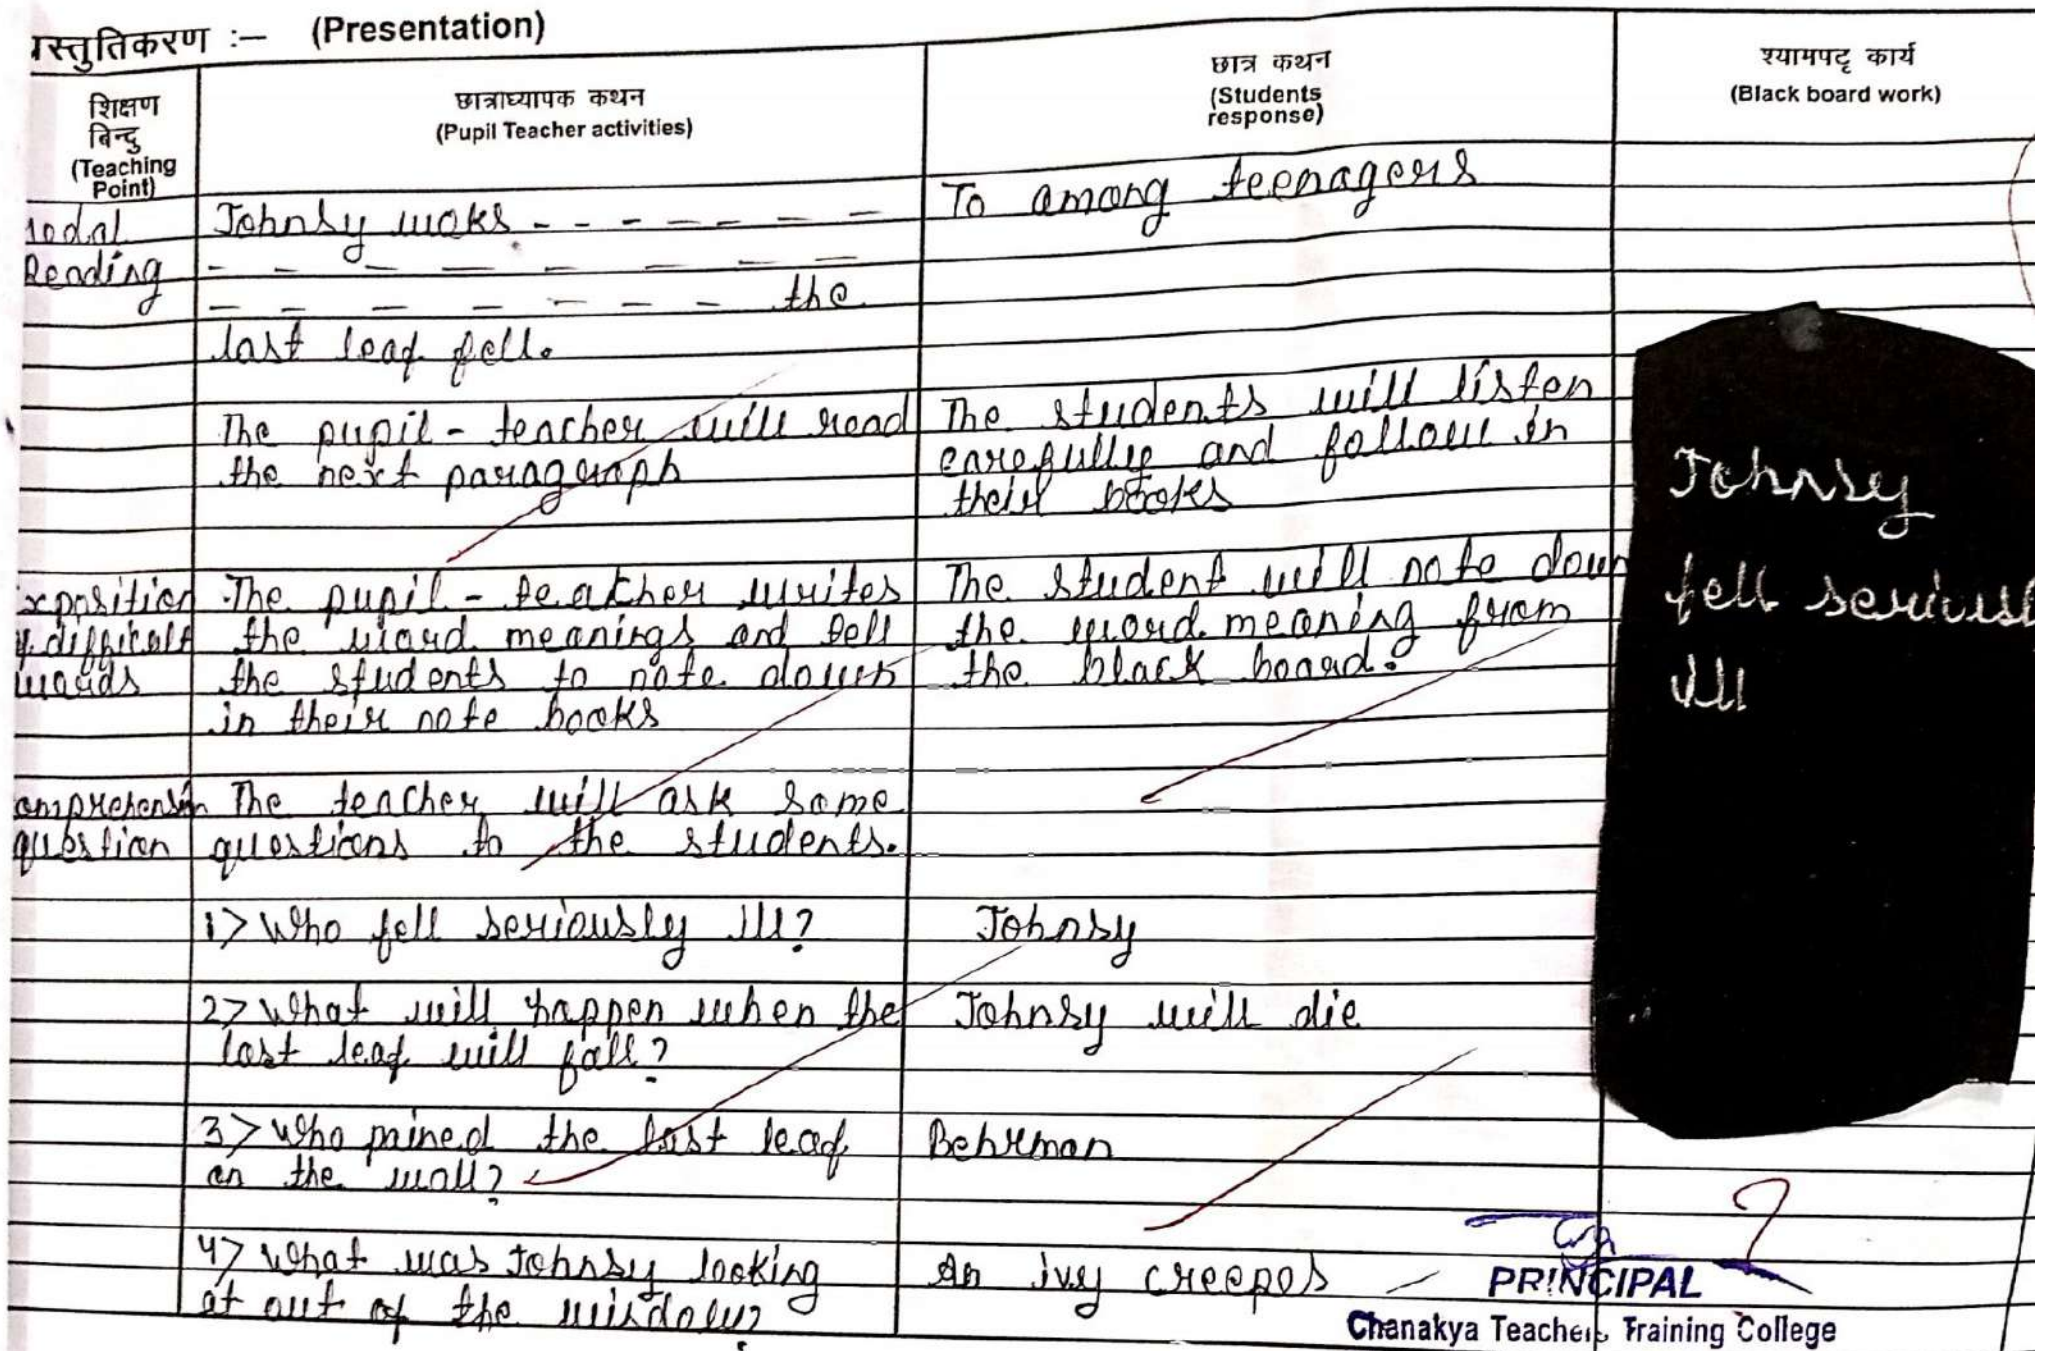 प्रस्तुतिकरण :– (Presentation)
शिक्षण
बिन्दु
(Teaching
Point)
छात्राध्यापक कथन
(Pupil Teacher activities)
छात्र कथन
(Students
response)
श्यामपट्ट कार्य
(Black board work)
Modal
Reading
Johnsy woks - - - - - - -
- - - - - - - -
- - - - - - - - the
last leaf fell.
To among teenagers
The pupil - teacher will read
the next paragraph
The students will listen
carefully and follow in
their books
Exposition
of difficult
words
The pupil - teacher writes
the word meanings and tell
the students to note down
in their note books
The student will note down
the word meaning from
the black board.
Comprehension
question
The teacher will ask some
questions to the students.
1> Who fell seriously ill?
Johnsy
2> What will happen when the
last leaf will fall?
Johnsy will die
3> Who pained the last leaf
on the wall?
Behrman
4> What was Johnsy looking
at out of the window?
An ivy creepes
Johnsy
fell seriousl
ill
PRINCIPAL
Chanakya Teachers Training College